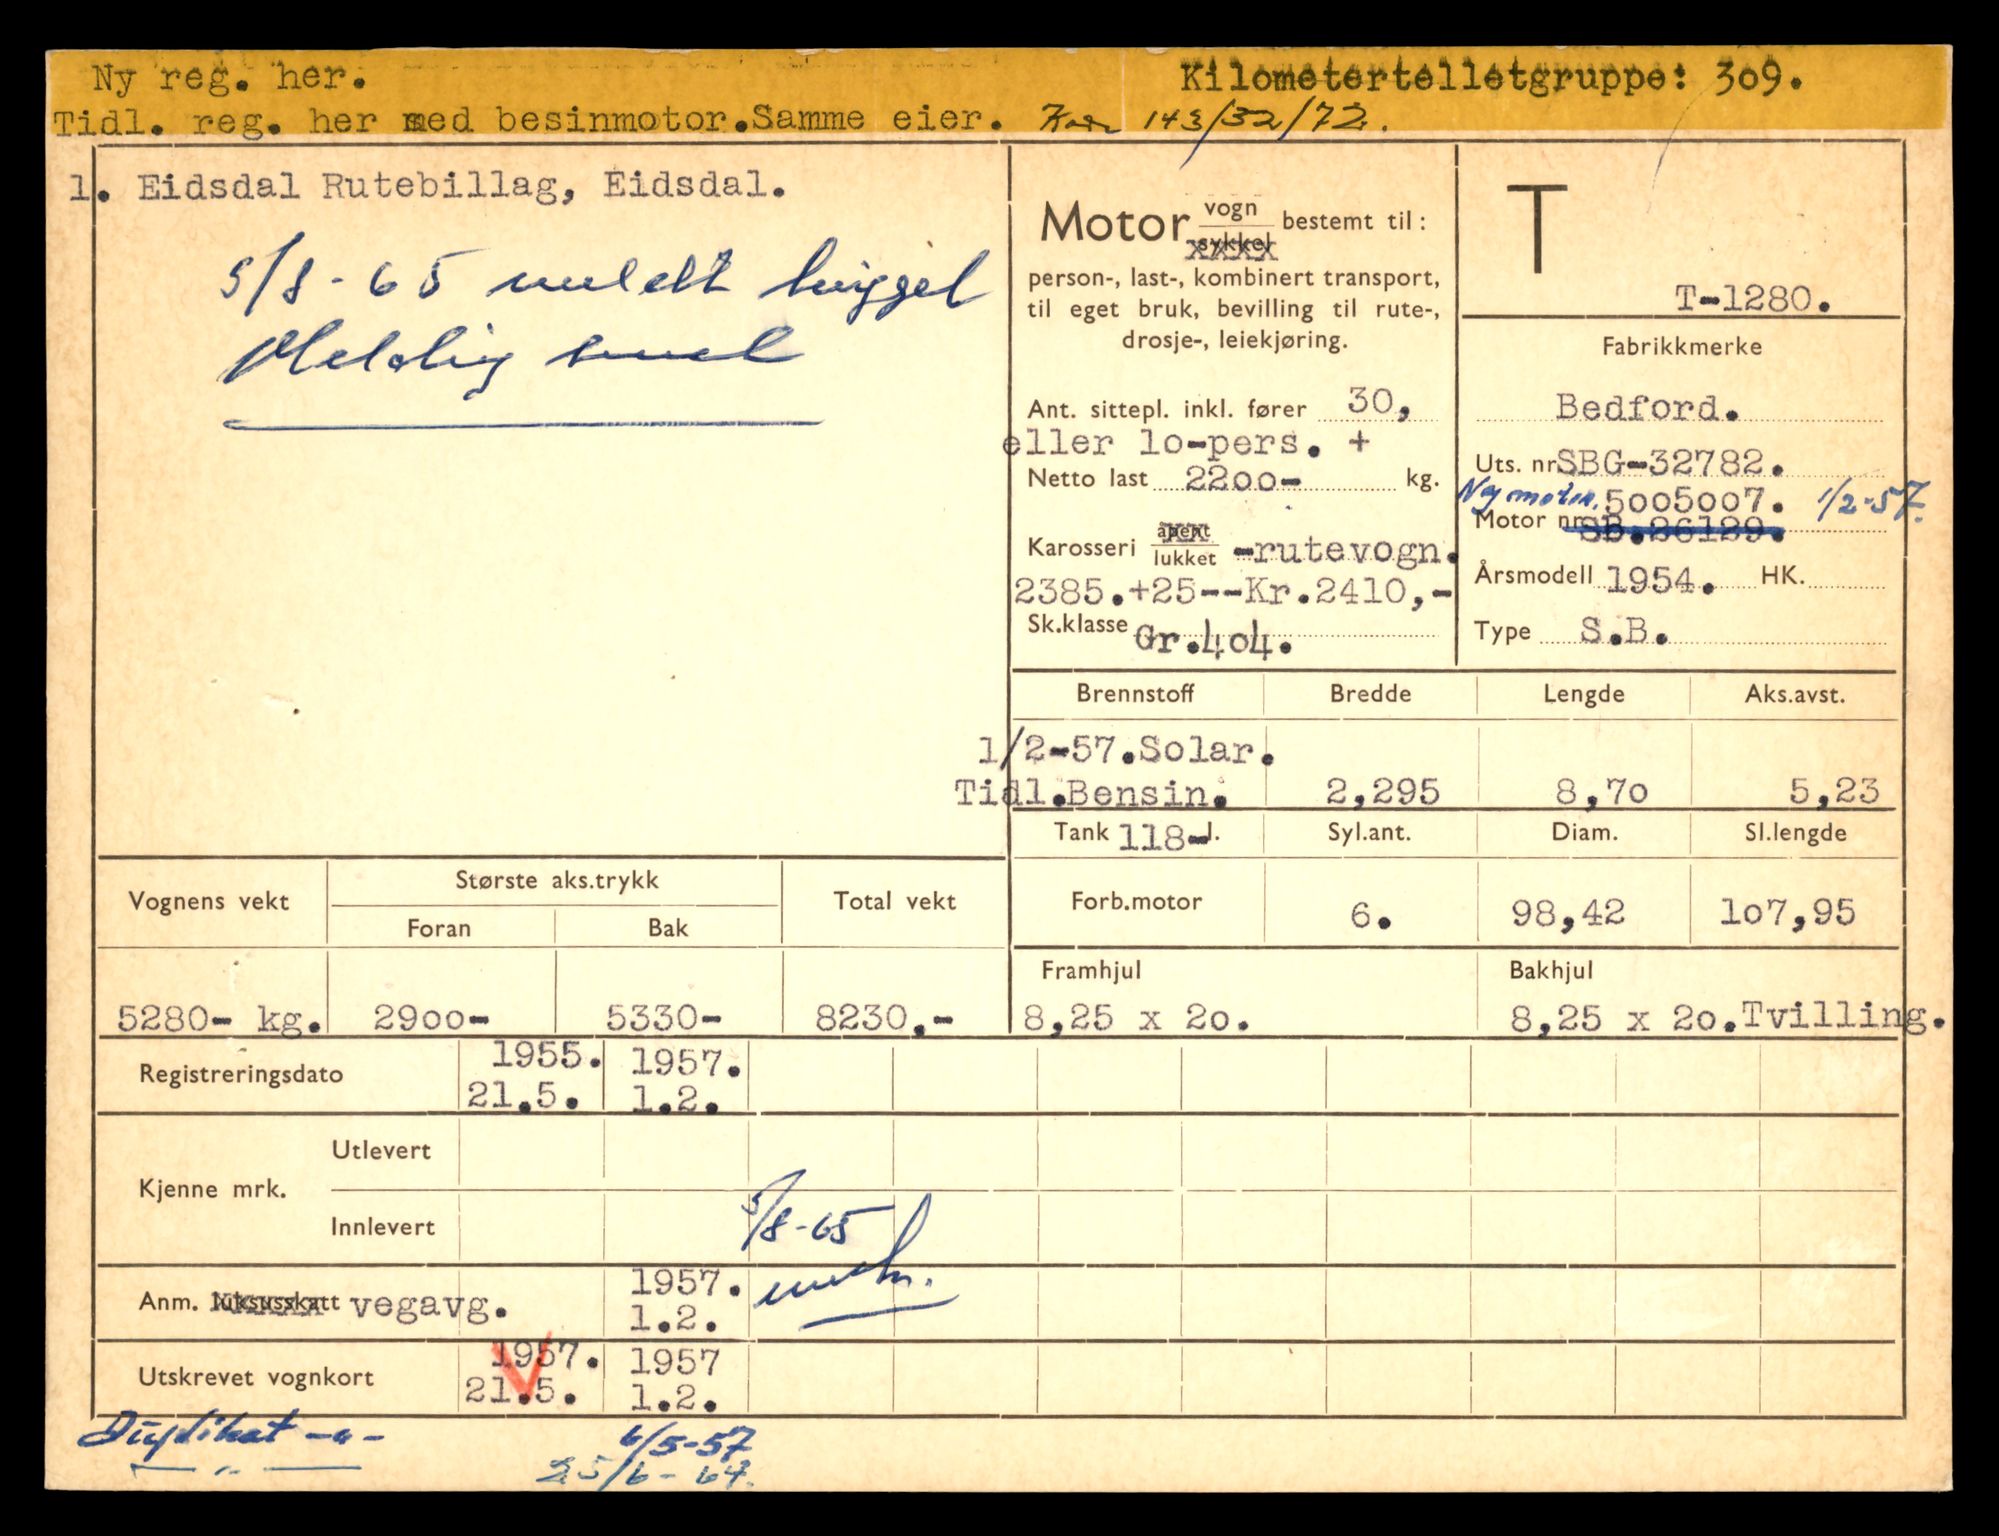 Ny reg. her.
Kilometertelletgruppe: 3o9.
Tidl. reg. her med besinmotor.Samme eier.
143/32/72.
1. Eidsdal Rutebillag, Eidsdal.
5/8-65
Motor vogn bestemt til:
sykkel
person-, last-, kombinert transport,
til eget bruk, bevilling til rute-,
drosje-, leiekjøring.
Ant. sittepl. inkl. fører 30,
eller lo-pers. +
Netto last 22oo- kg.
Karosseri åpent
lukket -rutevogn.
2385.+25--Kr.2410,-
Sk.klasse Gr.4o4.
T
T-1280.
Fabrikkmerke
Bedford.
Uts. nr. SBG-32782.
Ny motor. 5005007. 1/2-57.
Motor nr. SB.26129.
Årsmodell 1954. HK.
Type S.B.
Brennstoff Bredde Lengde Aks.avst.
1/2-57.Solar.
Tidl.Bensin. 2,295 8,7o 5,23
Tank 118-l. Syl.ant. Diam. Sl.lengde
Forb.motor 6. 98,42 lo7,95
Vognens vekt Største aks.trykk Total vekt
Foran Bak
5280- kg. 29oo- 5330- 8230.-
Framhjul Bakhjul
8,25 x 2o. 8,25 x 2o.Tvilling.
Registreringsdato 1955. 1957.
21.5. 1.2.
Kjenne mrk. Utlevert
Innlevert 5/8-65
Anm. luksusskatt vegavg. 1957.
1.2.
Utskrevet vognkort 1957. 1957
21.5. 1.2.
Duplikat -"- 6/5-57
-"- 25/6-64.